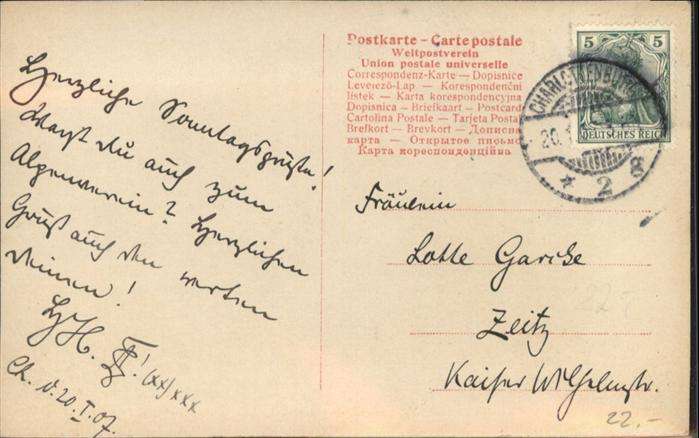 Herzliche Sonntagsgrüße!
Wart Du auch zum
Alpenverein? Herzlichen
Gruß auch den werten
Deinen!
Ch. d. 20. I. 07.
Postkarte – Carte postale
Weltpostverein
Union postale universelle
Correspondenz-Karte — Dopisnice
Levelező-Lap — Korespondenční
lístek — Karta korespondencyjna
Dopisnica — Briefkaart — Postcard
Cartolina Postale — Tarjeta Postal
Brefkort — Brevkort — Дописна
карта — Открытое письмо
Карта кореспонденційна
5 5
DEUTSCHES REICH
CHARLOTTENBURG
20.1
* 2 g
Fräulein
Lotte Garcke
Zeitz
Kaiser Wilhelmstr.
22.-